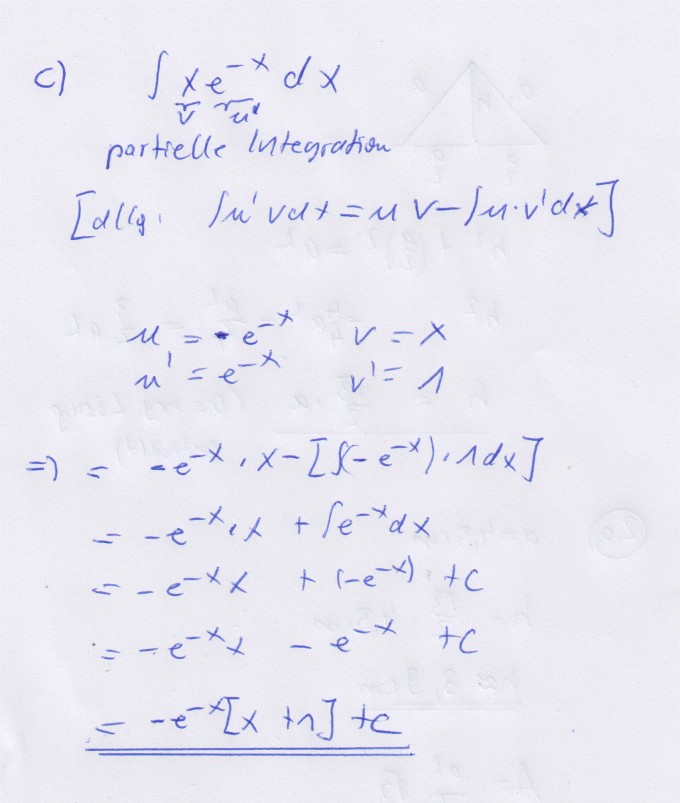 c) ∫ x e^-x dx
v u'
partielle Integration
[allg. ∫u' v dx = u v - ∫u · v' dx]
u = - e^-x v = x
u' = e^-x v' = 1
=> = -e^-x · x - [∫(-e^-x) · 1 dx]
= -e^-x · x + ∫e^-x dx
= -e^-x x + (-e^-x) + c
= -e^-x x - e^-x + c
= -e^-x [x + 1] + c